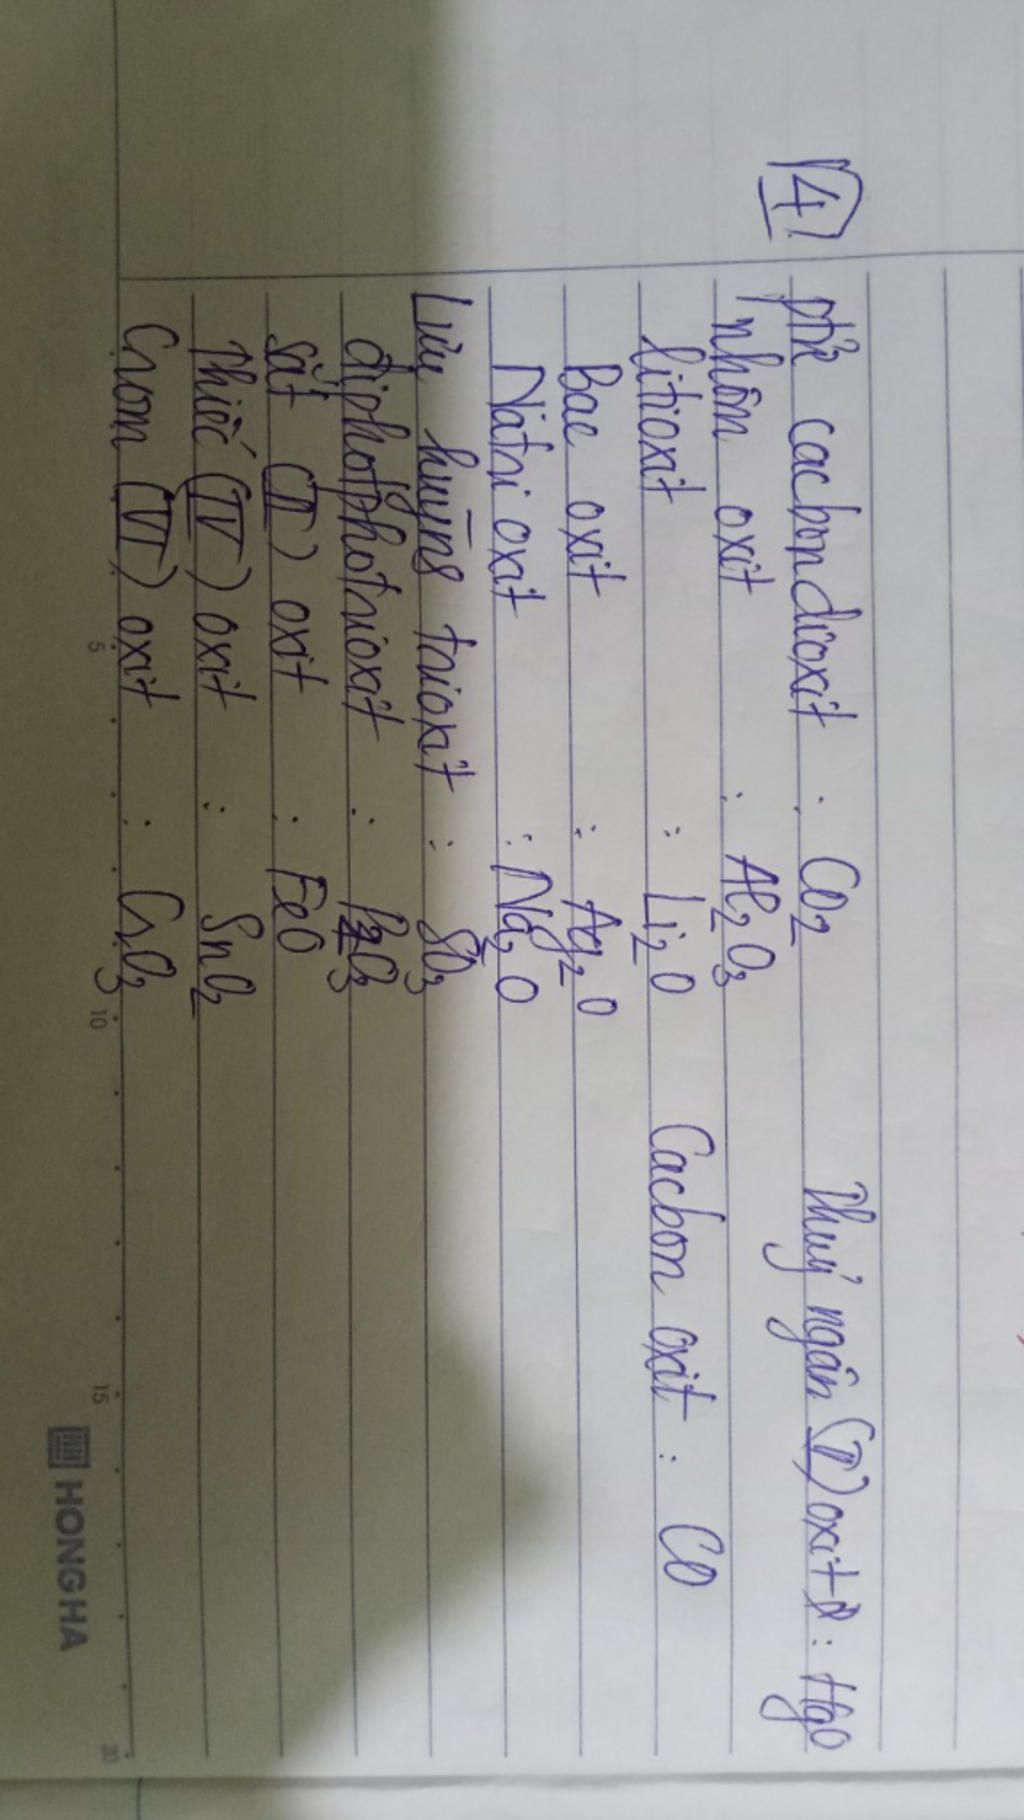 4
pth cacbondioxit : CO2 Thuỷ ngân (II) oxit : HgO
nhôm oxit : Al2O3
litioxit : Li2O Cacbon oxit : CO
Bac oxit : Ag2O
Natri oxit : Na2O
Lưu huỳng trioxit : SO3
điphotphotrioxit : P2O3
sắt (II) oxit : FeO
Thiếc (IV) oxit : SnO2
Crom (VI) oxit : CrO3
5 10 15 20
HONG HA